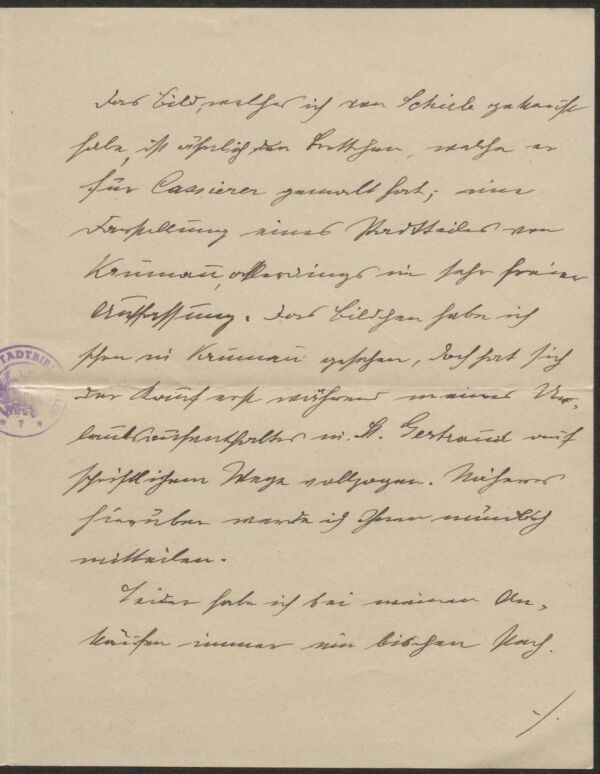 Das Bild, welches ich von Schiele gekauft
habe, ist ähnlich den Brettchen, welche er
für Cassierer gemalt hat; eine
Darstellung eines Stadtteiles von
Krumau, allerdings in sehr freier
Auffassung. Das Bildchen habe ich
schon in Krumau gesehen, doch hat sich
der Kauf erst während meines Ur-
laubsaufenthaltes in St. Gertraud auf
schriftlichem Wege vollzogen. Näheres
hierüber werde ich Ihnen mündlich
mitteilen.
Leider habe ich bei meinen An-
käufen immer ein bischen Pech.
-/.
STADTBIB
* 7 *